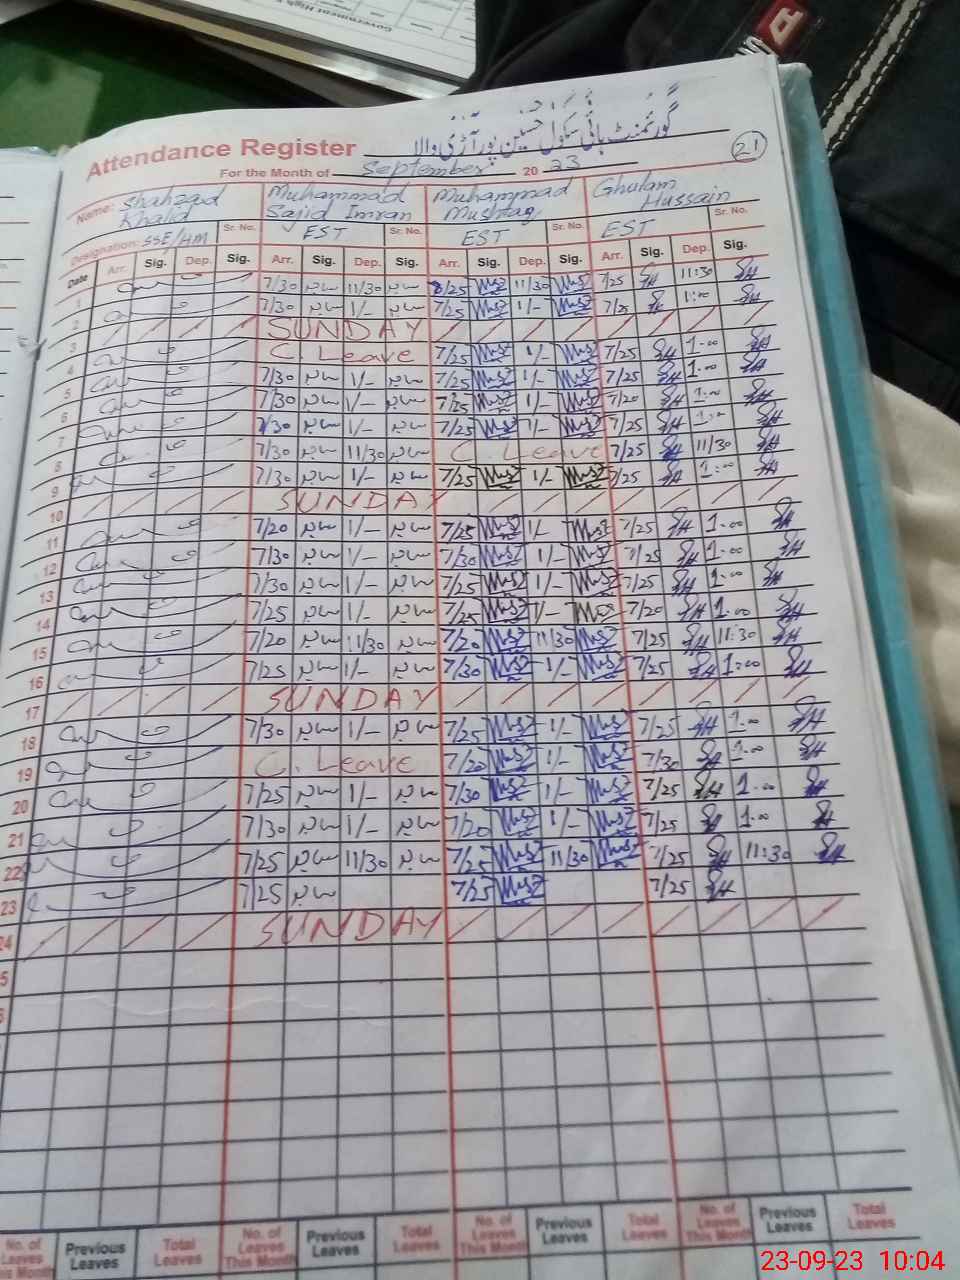 Government High
گورنمنٹ ہائی سکول حسین پور آڑی والا
Attendance Register
21
For the Month of September 2023
Name: Shahzad Khalid Muhammad Sajid Imran Muhammad Mushtaq Ghulam Hussain
Designation: SSE/HM Sr. No. EST Sr. No. EST Sr. No. EST Sr. No.
Date Arr. Sig. Dep. Sig. Arr. Sig. Dep. Sig. Arr. Sig. Dep. Sig. Arr. Sig. Dep. Sig.
1 7/30 11/30 8/25 11/30 7/25 11:30
2 7/30 1/- 7/25 1/- 7/25 1:00
3 SUNDAY
4 C. Leave 7/25 1/- 7/25 1:00
5 7/30 1/- 7/25 1/- 7/25 1:00
6 7/30 1/- 7/25 1/- 7/20 1:00
7 7/30 1/- 7/25 1/- 7/25 1:00
8 7/30 11/30 C. Leave 7/25 11/30
9 7/30 1/- 7/25 1/- 7/25 1:00
10 SUNDAY
11 7/20 1/- 7/25 1/- 7/25 1:00
12 7/30 1/- 7/30 1/- 7/25 1:00
13 7/30 1/- 7/25 1/- 7/25 1:00
14 7/25 1/- 7/25 1/- 7/20 1:00
15 7/20 11/30 7/20 11/30 7/25 11:30
16 7/25 1/- 7/30 1/- 7/25 1:00
17 SUNDAY
18 7/30 1/- 7/25 1/- 7/25 1:00
19 C. Leave 7/20 1/- 7/30 1:00
20 7/25 1/- 7/30 1/- 7/25 1:00
21 7/30 1/- 7/20 1/- 7/25 1:00
22 7/25 11/30 7/25 11/30 7/25 11:30
23 7/25 7/25 7/25
24 SUNDAY
No. of Leaves This Month Previous Leaves Total Leaves No. of Leaves This Month Previous Leaves Total Leaves No. of Leaves This Month Previous Leaves Total Leaves No. of Leaves This Month Previous Leaves Total Leaves
23-09-23 10:04